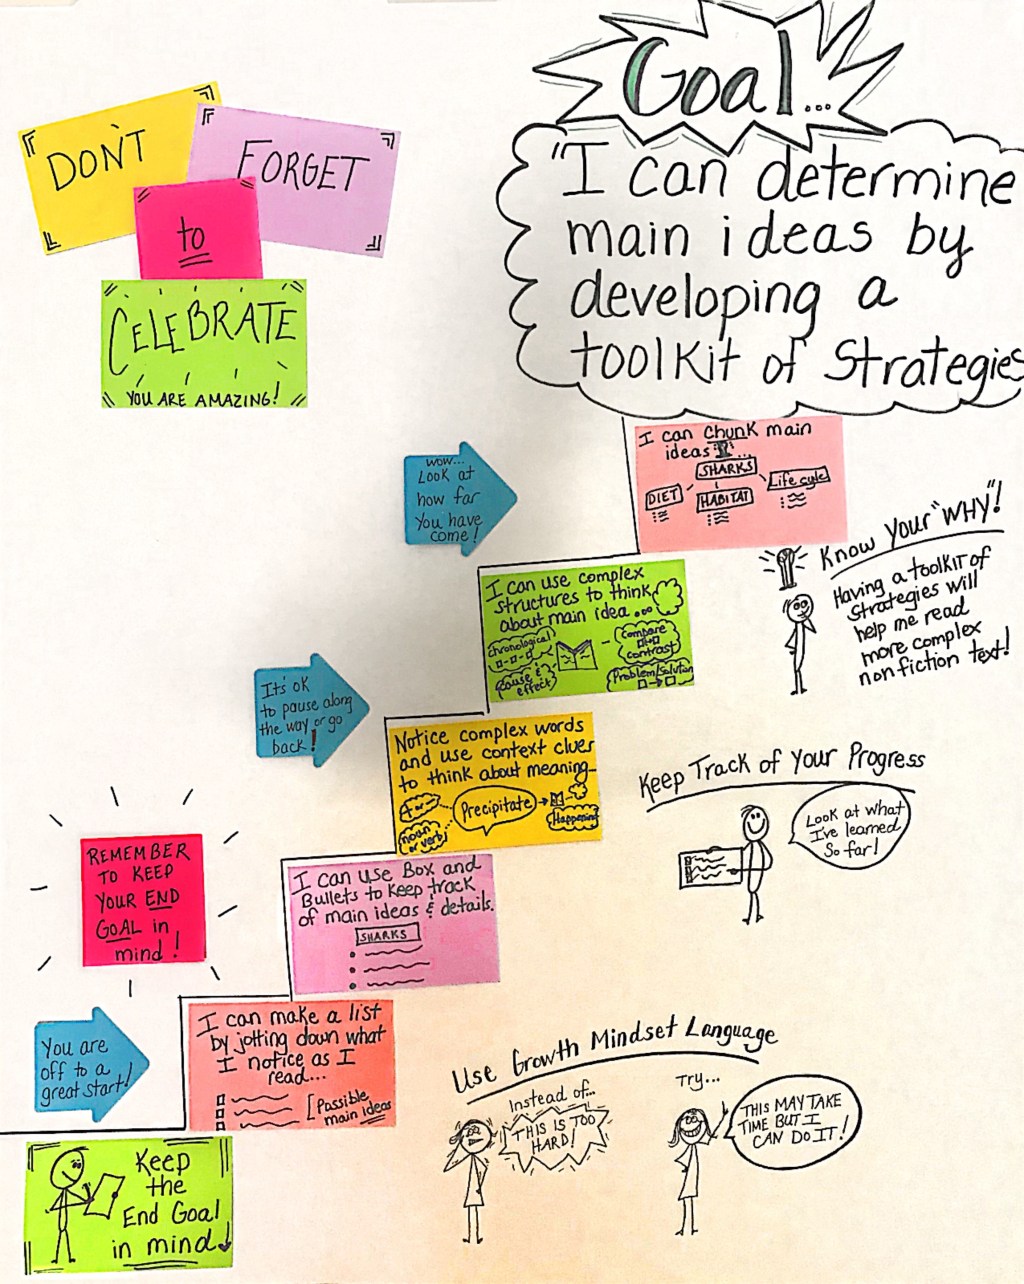 Goal...
"I can determine
main ideas by
developing a
toolkit of Strategies
DON'T
FORGET
to
CELEBRATE
YOU ARE AMAZING!
wow...
Look at
how far
You have
come!
I can chunk main
ideas...
SHARKS
DIET
HABITAT
Life cycle
Know Your "WHY"!
Having a toolkit of
strategies will
help me read
more complex
nonfiction text!
I can use complex
structures to think
about main idea...
chronological
cause &
effect
compare
contrast
Problem/Solution
It's ok
to pause along
the way or go
back!
Notice complex words
and use context clues
to think about meaning
+ or -
noun
or verb
Precipitate
Happening
Keep Track of Your Progress
Look at what
I've learned
So far!
REMEMBER
TO KEEP
YOUR END
GOAL in
mind!
I can use Box and
Bullets to keep track
of main ideas & details.
SHARKS
You are
off to a
great start!
I can make a list
by jotting down what
I notice as I
read...
Possible
main ideas
Use Growth Mindset Language
Instead of...
THIS IS TOO
HARD!
Try...
THIS MAY TAKE
TIME BUT I
CAN DO IT!
Keep
the
End Goal
in mind